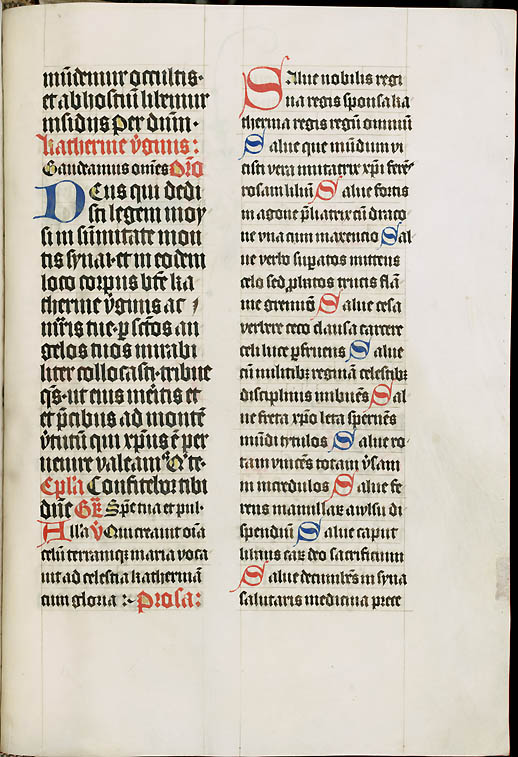 mūdemur occultis·
et ab hostiū liberemur
insidijs per dūm·
katherine v̔ginis:
Gaudeamus om̄es Or̄o
Deus qui dedi
sti legem moy
si in sūmitate mon
tis synai·et in eodem
loco corpus bt̄e ka
therine v̔ginis ac
mr̄is tue·p sctōs an
gelos tuos mirabi
liter collocasti·tribue
qs̄·ut eius mēitis et
et p̄cibus ad montē
v̔tutū qui xp̄us ē per
uenire valeam⁹ Q te·
Epl̄a Confitebor tibi
dn̄e Gr̄ Spetua et pul·
Alla v̔ Qui creauit oīa
celū terramq; maria voca
uit ad celestia katherinā
cum gloria : prosa:
Salue nobilis regi
na regis sponsa ka
therina regis regū omniū
Salue que mūdum vi
cisti vera imitatrix xp̄i ferēs
rosam liliū Salue fortis
in agone p̄liatrix cū draco
ne vna cum maxencio Sal
ue verbo supatos mittens
celo sed pbatos trucis flā
me gremiū Salue cesa
verbere ceco clausa carcere
celi luce pfrueris Salue
cū militibꝫ reginā celestibꝫ
disciplinis imbuēs Sal
ue freta xp̄o leta spernēs
mūdi tytulos Salue ro
tam vincēs totam v̔sam
in incredulos Salue fe
rens mamillaꝝ auulsu di
spendiū Salue caput
libans caꝝ deo sacrificium
Salue decumbēs in syna
salutaris medicina prece